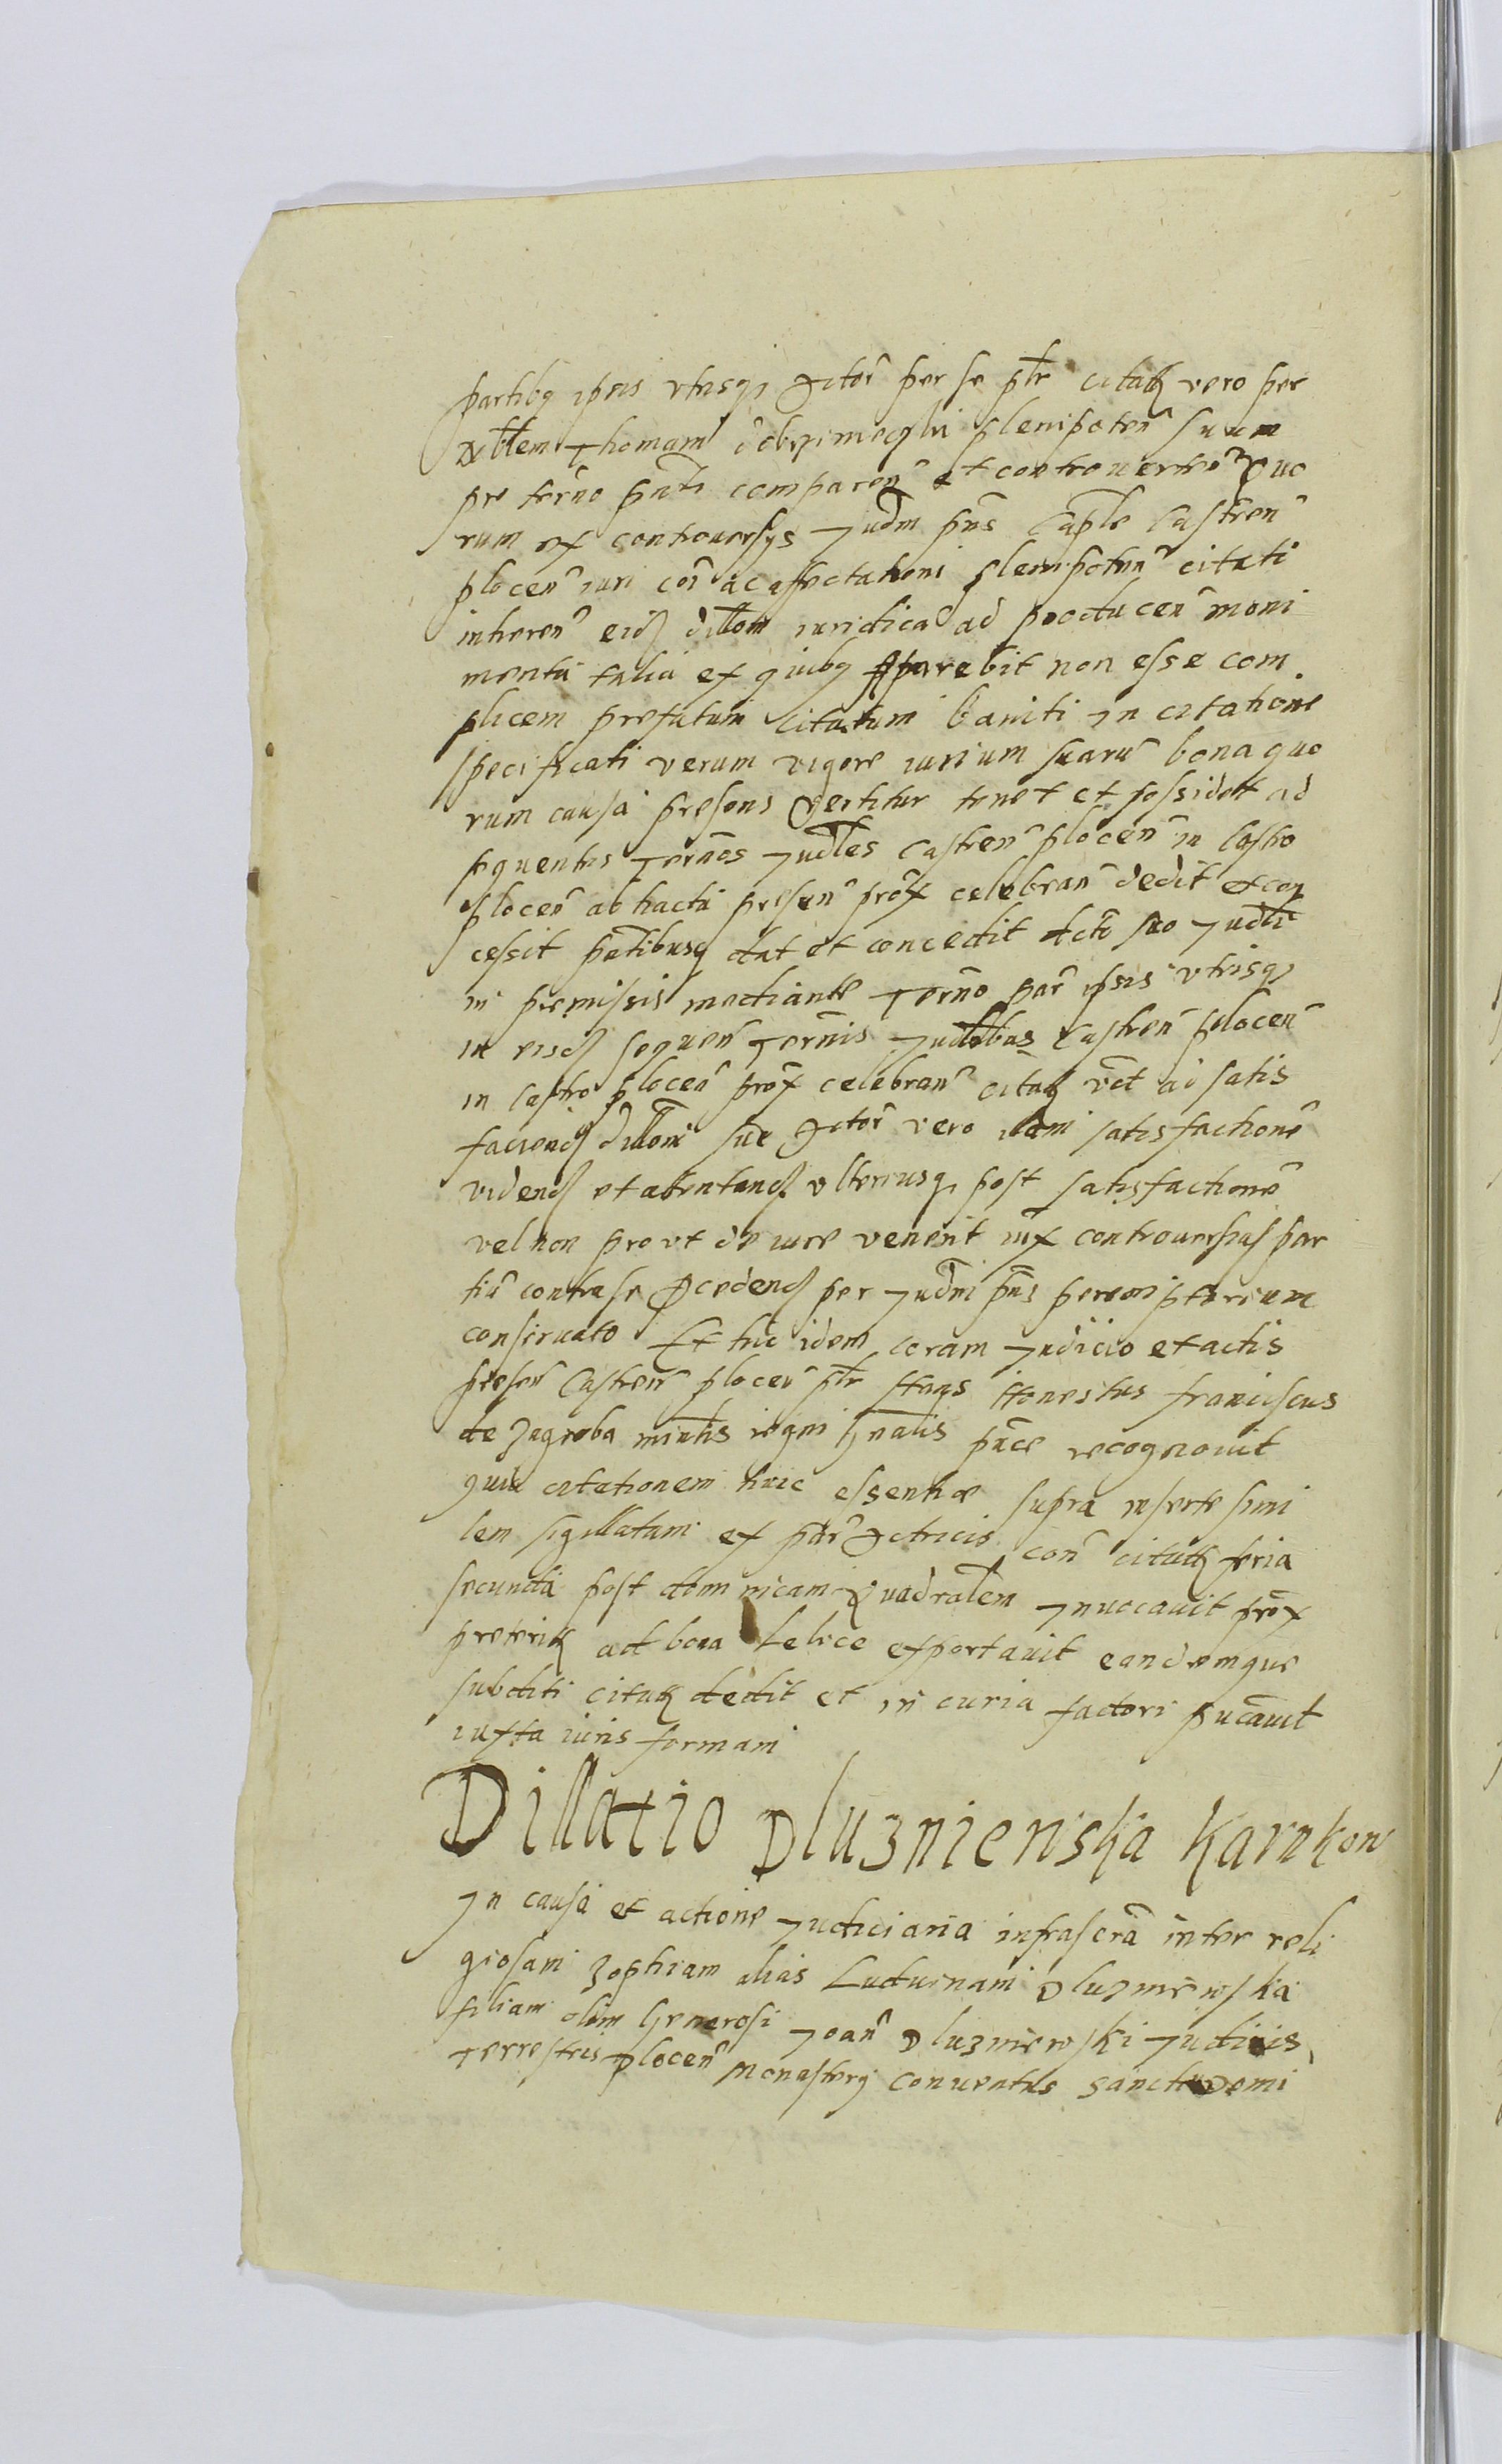 partibq ipsis vtrisq, Actor̃ per se pl̃r citatꝶ vero per
Nobĩlem Thomam plenipoten̄ suum
pre termĩno pñti comparen̄ et controuerten̄ Quo
rum ex controuersijs Judm̃ pñs Cap̃le Castren̄
plocen̄ iuri coĩ ac affectationi plenipoten̄ citati
inheren̄ eidꝫ dillom̃ iuridicã ad producen̄ moni
menta talia ex quibq apparebit non esse com
plicem prefatum Citatum baniti in citatione
specificati verum vigore iurium suarũ bona quo
rum causa presens vertitur tenet et possidet ad
sequentes Termĩos Judĩles Castren̄ plocen̄ in Castro
plocen̄ ab hacta presen̄ prõx celebran̄ dedit et con
cessit partibusq dat et concedit dcto suo Judĩli
in premissis mediante Termĩno par̄ ipsis vtrisq,
in eisdꝫ sequen̄ Termĩnis Judĩlibus Castren̄ plocen̄
in Castro plocen̄ prõx celebran̄ citatꝶ vc̃t ad satis
faciendꝫ dillom̃ sue Actor̃ vero illam satisfactionẽ
videndꝫ et attentandꝫ vlteriusq, post satisfactionẽ
vel non pro vt de iure venerit iux̃ controuersias par
tiũ contra se ꝓcedendꝫ per Judm̃ pñs peremptorium
conseruato Et hic idem coram Judicio et actis
presen̄ Castren̄ plocen̄ pl̃r stans Honestus franciscus
de Zagroba mintl̃is regni Gñalis pñce recognouit
quia citationem huic essentiæ supra inserte simi
lem sigillatam ex par̄ Actricis con̄ citatꝶ feria
secunda post dominicam Quadralem̃ Jnuocauit prõx
preteritꝶ ad bona Lelice exportauit eandemque
subditi citatꝶ dedit et in curia factori pucãuit
iuxta iuris formam
Dillatio Dluznienska Karnkow
Jn causa et actione Judiciaria infrascrã inter reli
giosam Zophiam alias Luduinam Dluzniewska
filiam olim Generosi Joan̄ Dluzniewski Judicis
Terrestris plocen̄ Monasterij conuentus sancti Domi